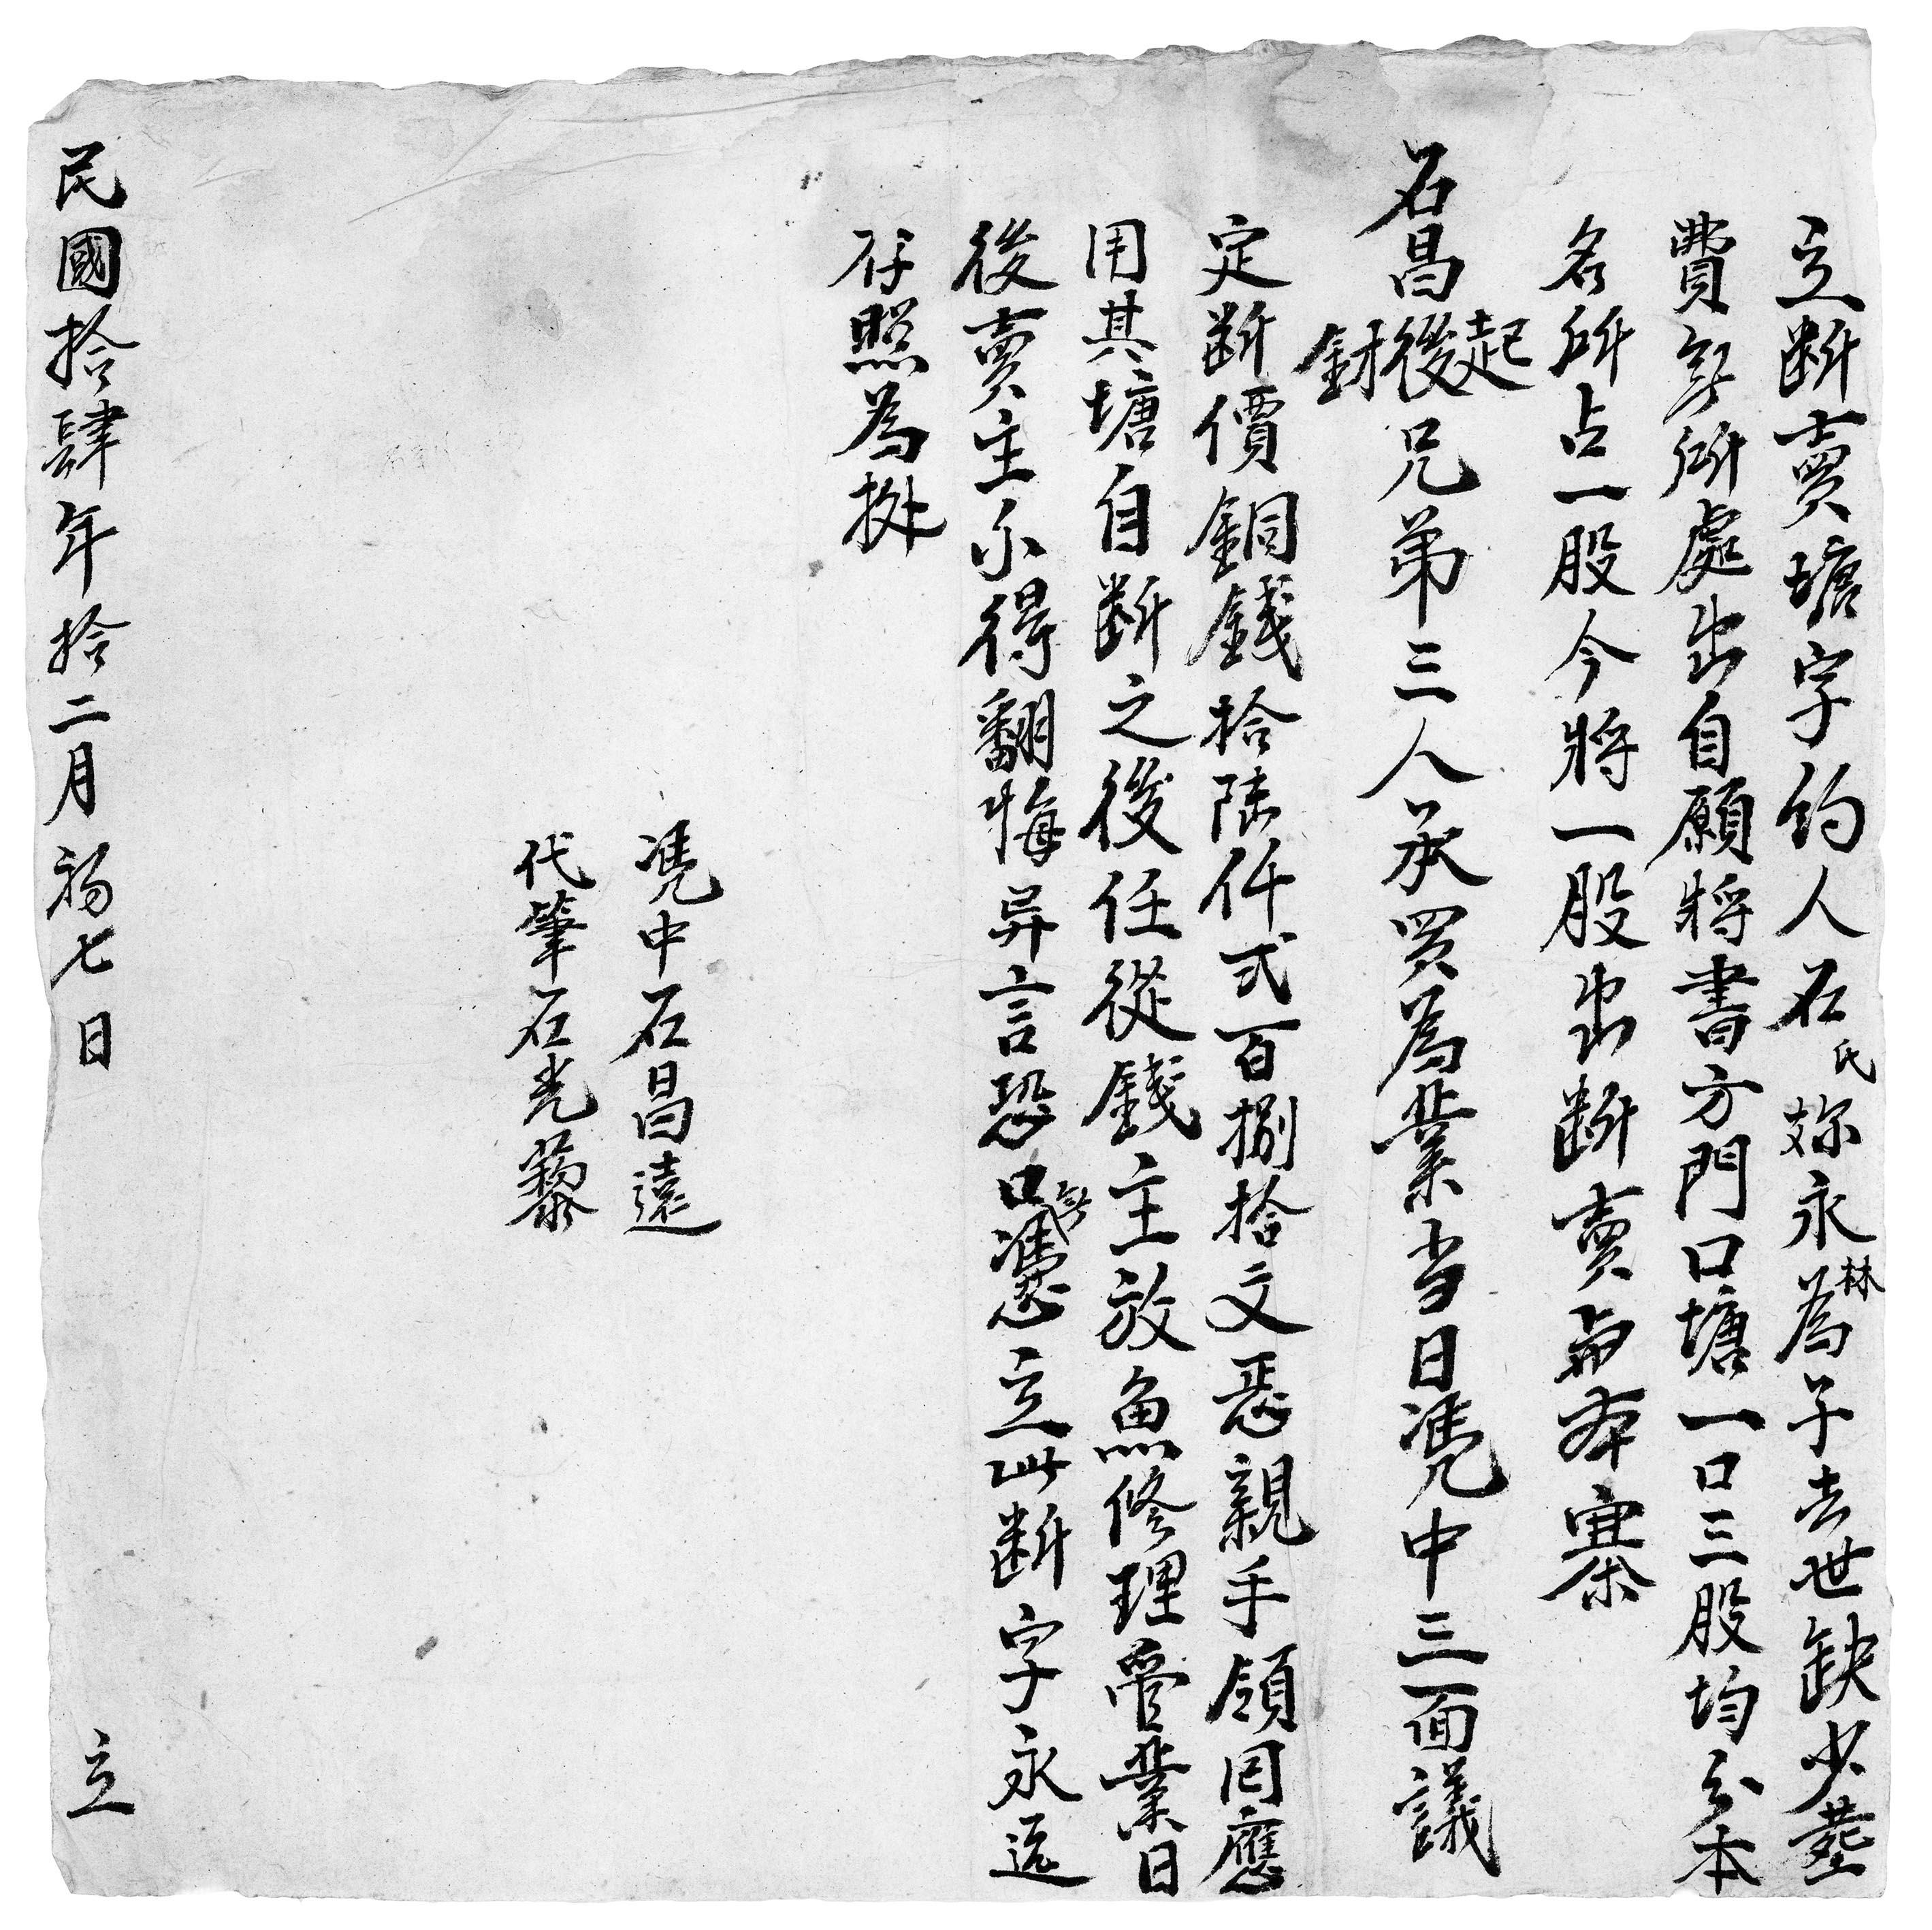 立断賣塘字約人石氏妳永林為子去世缺少塟
費無所處出自願將書方門口塘一口三股均分本
名所占一股今將一股出断賣與本寨
石昌起後釮兄弟三人承買為業当日凴中三面議
定断價銅錢拾陸仟弍百捌拾文恁親手領囙應
用其塘自断之後任從錢主放魚修理管業日
後賣主不得翻悔异言恐口無憑立此断字永遠
存照為挶
凴中石昌遠
代筆石光藜
民國拾肆年拾二月初七日 立